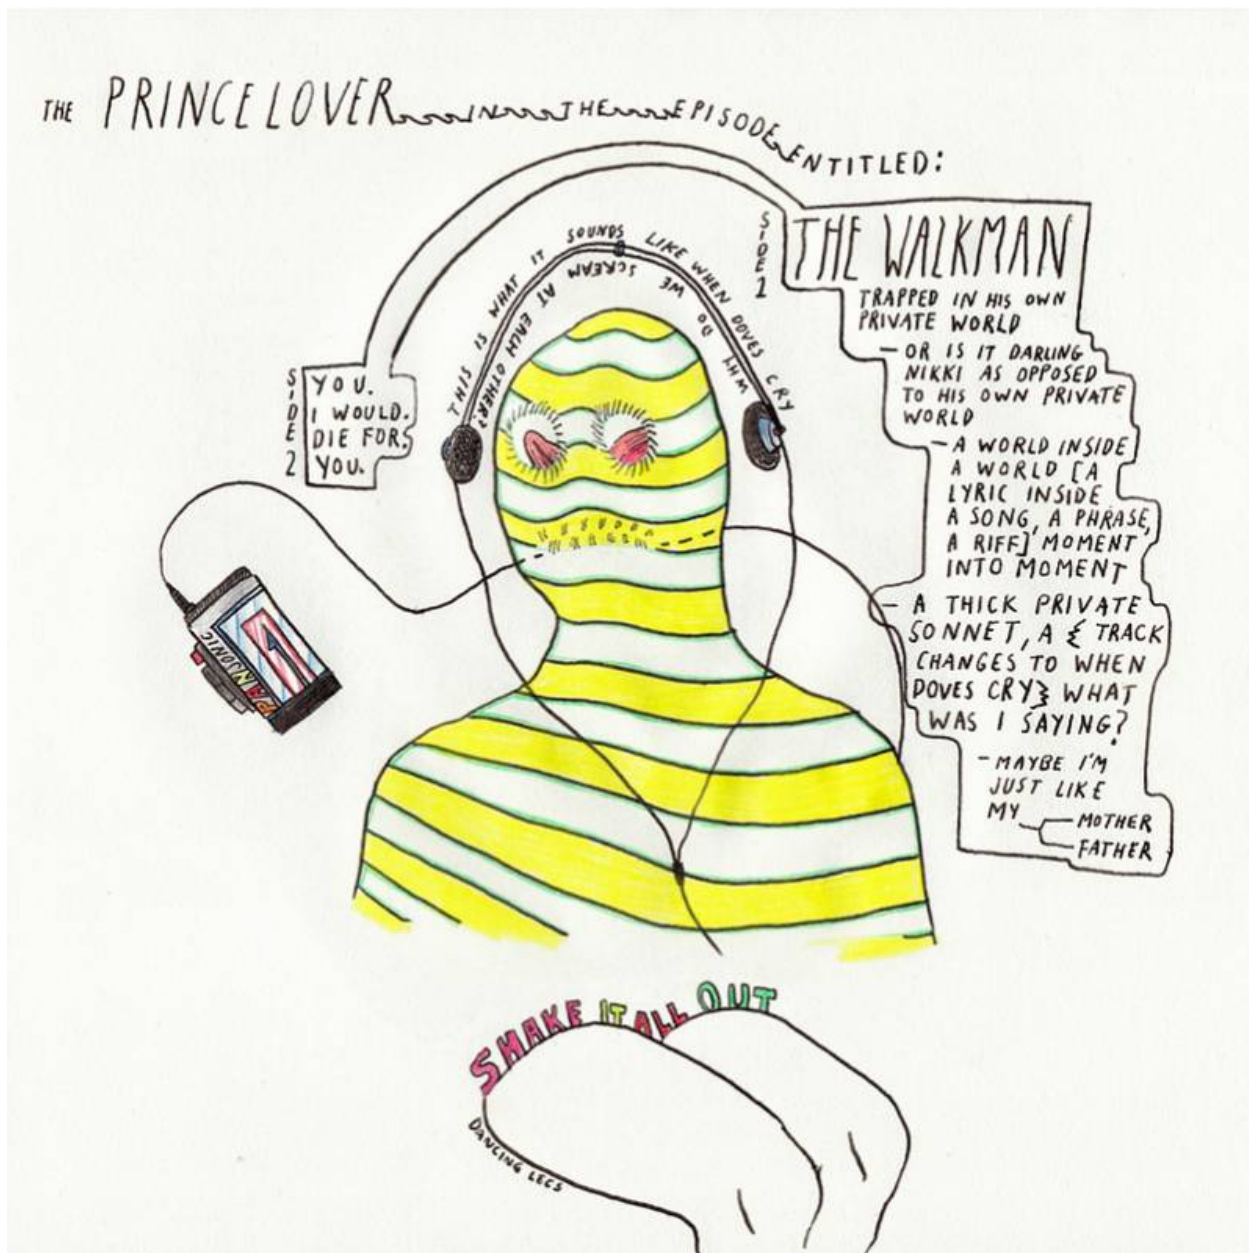 THE PRINCE LOVER IN THE EPISODE ENTITLED:
SIDE 1
THE WALKMAN
TRAPPED IN HIS OWN
PRIVATE WORLD
— OR IS IT DARLING
NIKKI AS OPPOSED
TO HIS OWN PRIVATE
WORLD
— A WORLD INSIDE
A WORLD [A
LYRIC INSIDE
A SONG, A PHRASE,
A RIFF] MOMENT
INTO MOMENT
— A THICK PRIVATE
SONNET, A { TRACK
CHANGES TO WHEN
DOVES CRY} WHAT
WAS I SAYING?
- MAYBE I'M
JUST LIKE
MY MOTHER
FATHER
THIS IS WHAT IT SOUNDS LIKE WHEN DOVES CRY
WHY DO WE SCREAM AT EACH OTHER?
SIDE 2
YOU.
I WOULD.
DIE FOR
YOU.
PANSONIC
SHAKE IT ALL OUT
DANCING LEGS